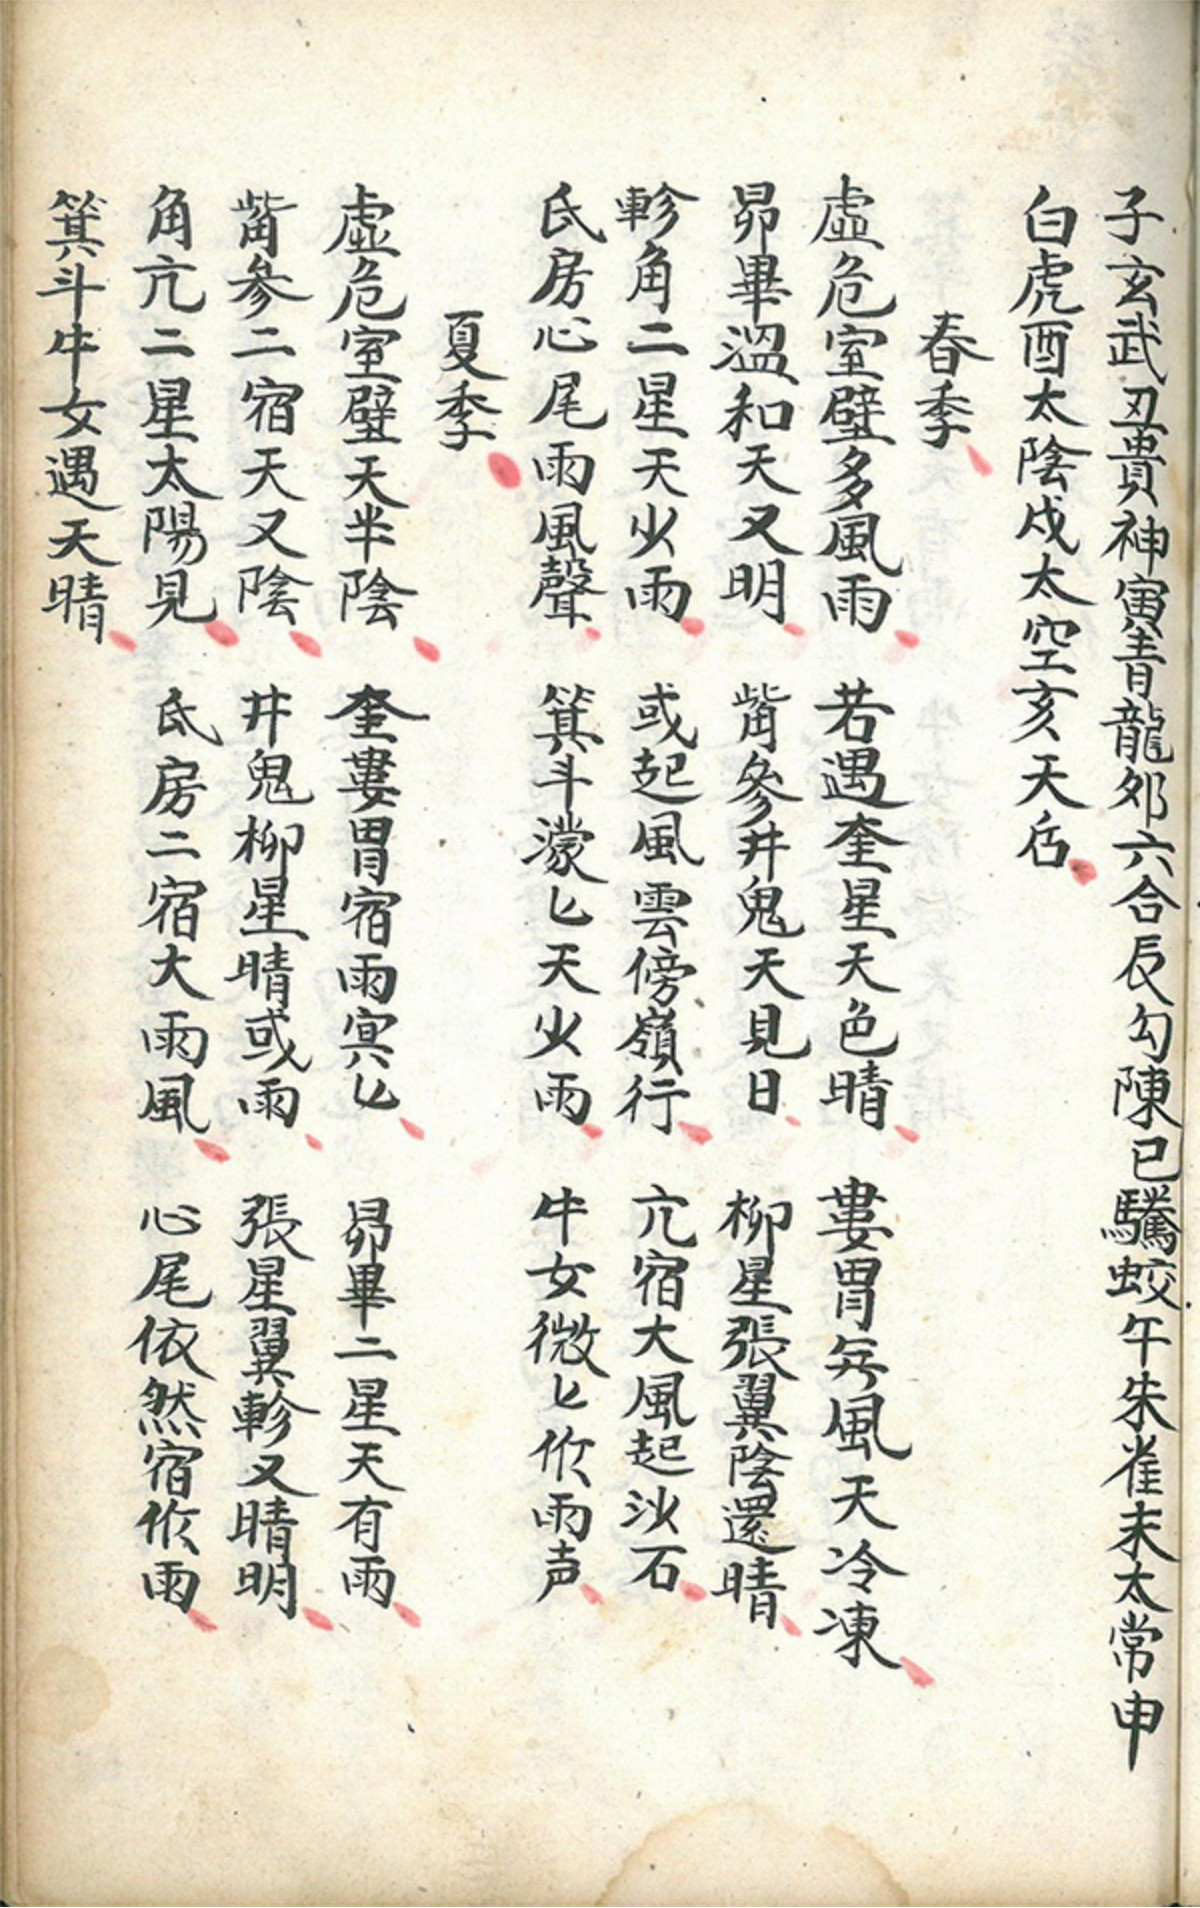 子玄武丑貴神寅青龍卯六合辰勾陳巳驣蛟午朱雀未太常申
白虎酉太陰戌太空亥天后
春季
虛危室壁多風雨 若遇奎星天色晴 婁胃無風天冷凍
昴畢溫和天又明 觜參井鬼天見日 柳星張翼陰還晴
軫角二星天少雨 或起風雲傍嶺行 亢宿大風起沙石
氐房心尾雨風聲 箕斗濛匕天少雨 牛女微匕作雨声
夏季
虛危室壁天半陰 奎婁胃宿雨冥匕 昴畢二星天有雨
觜参二宿天又陰 井鬼柳星晴或雨 張星翼軫又晴明
角亢二星太陽見 氐房二宿大雨風 心尾依然宿作雨
箕斗牛女遇天晴